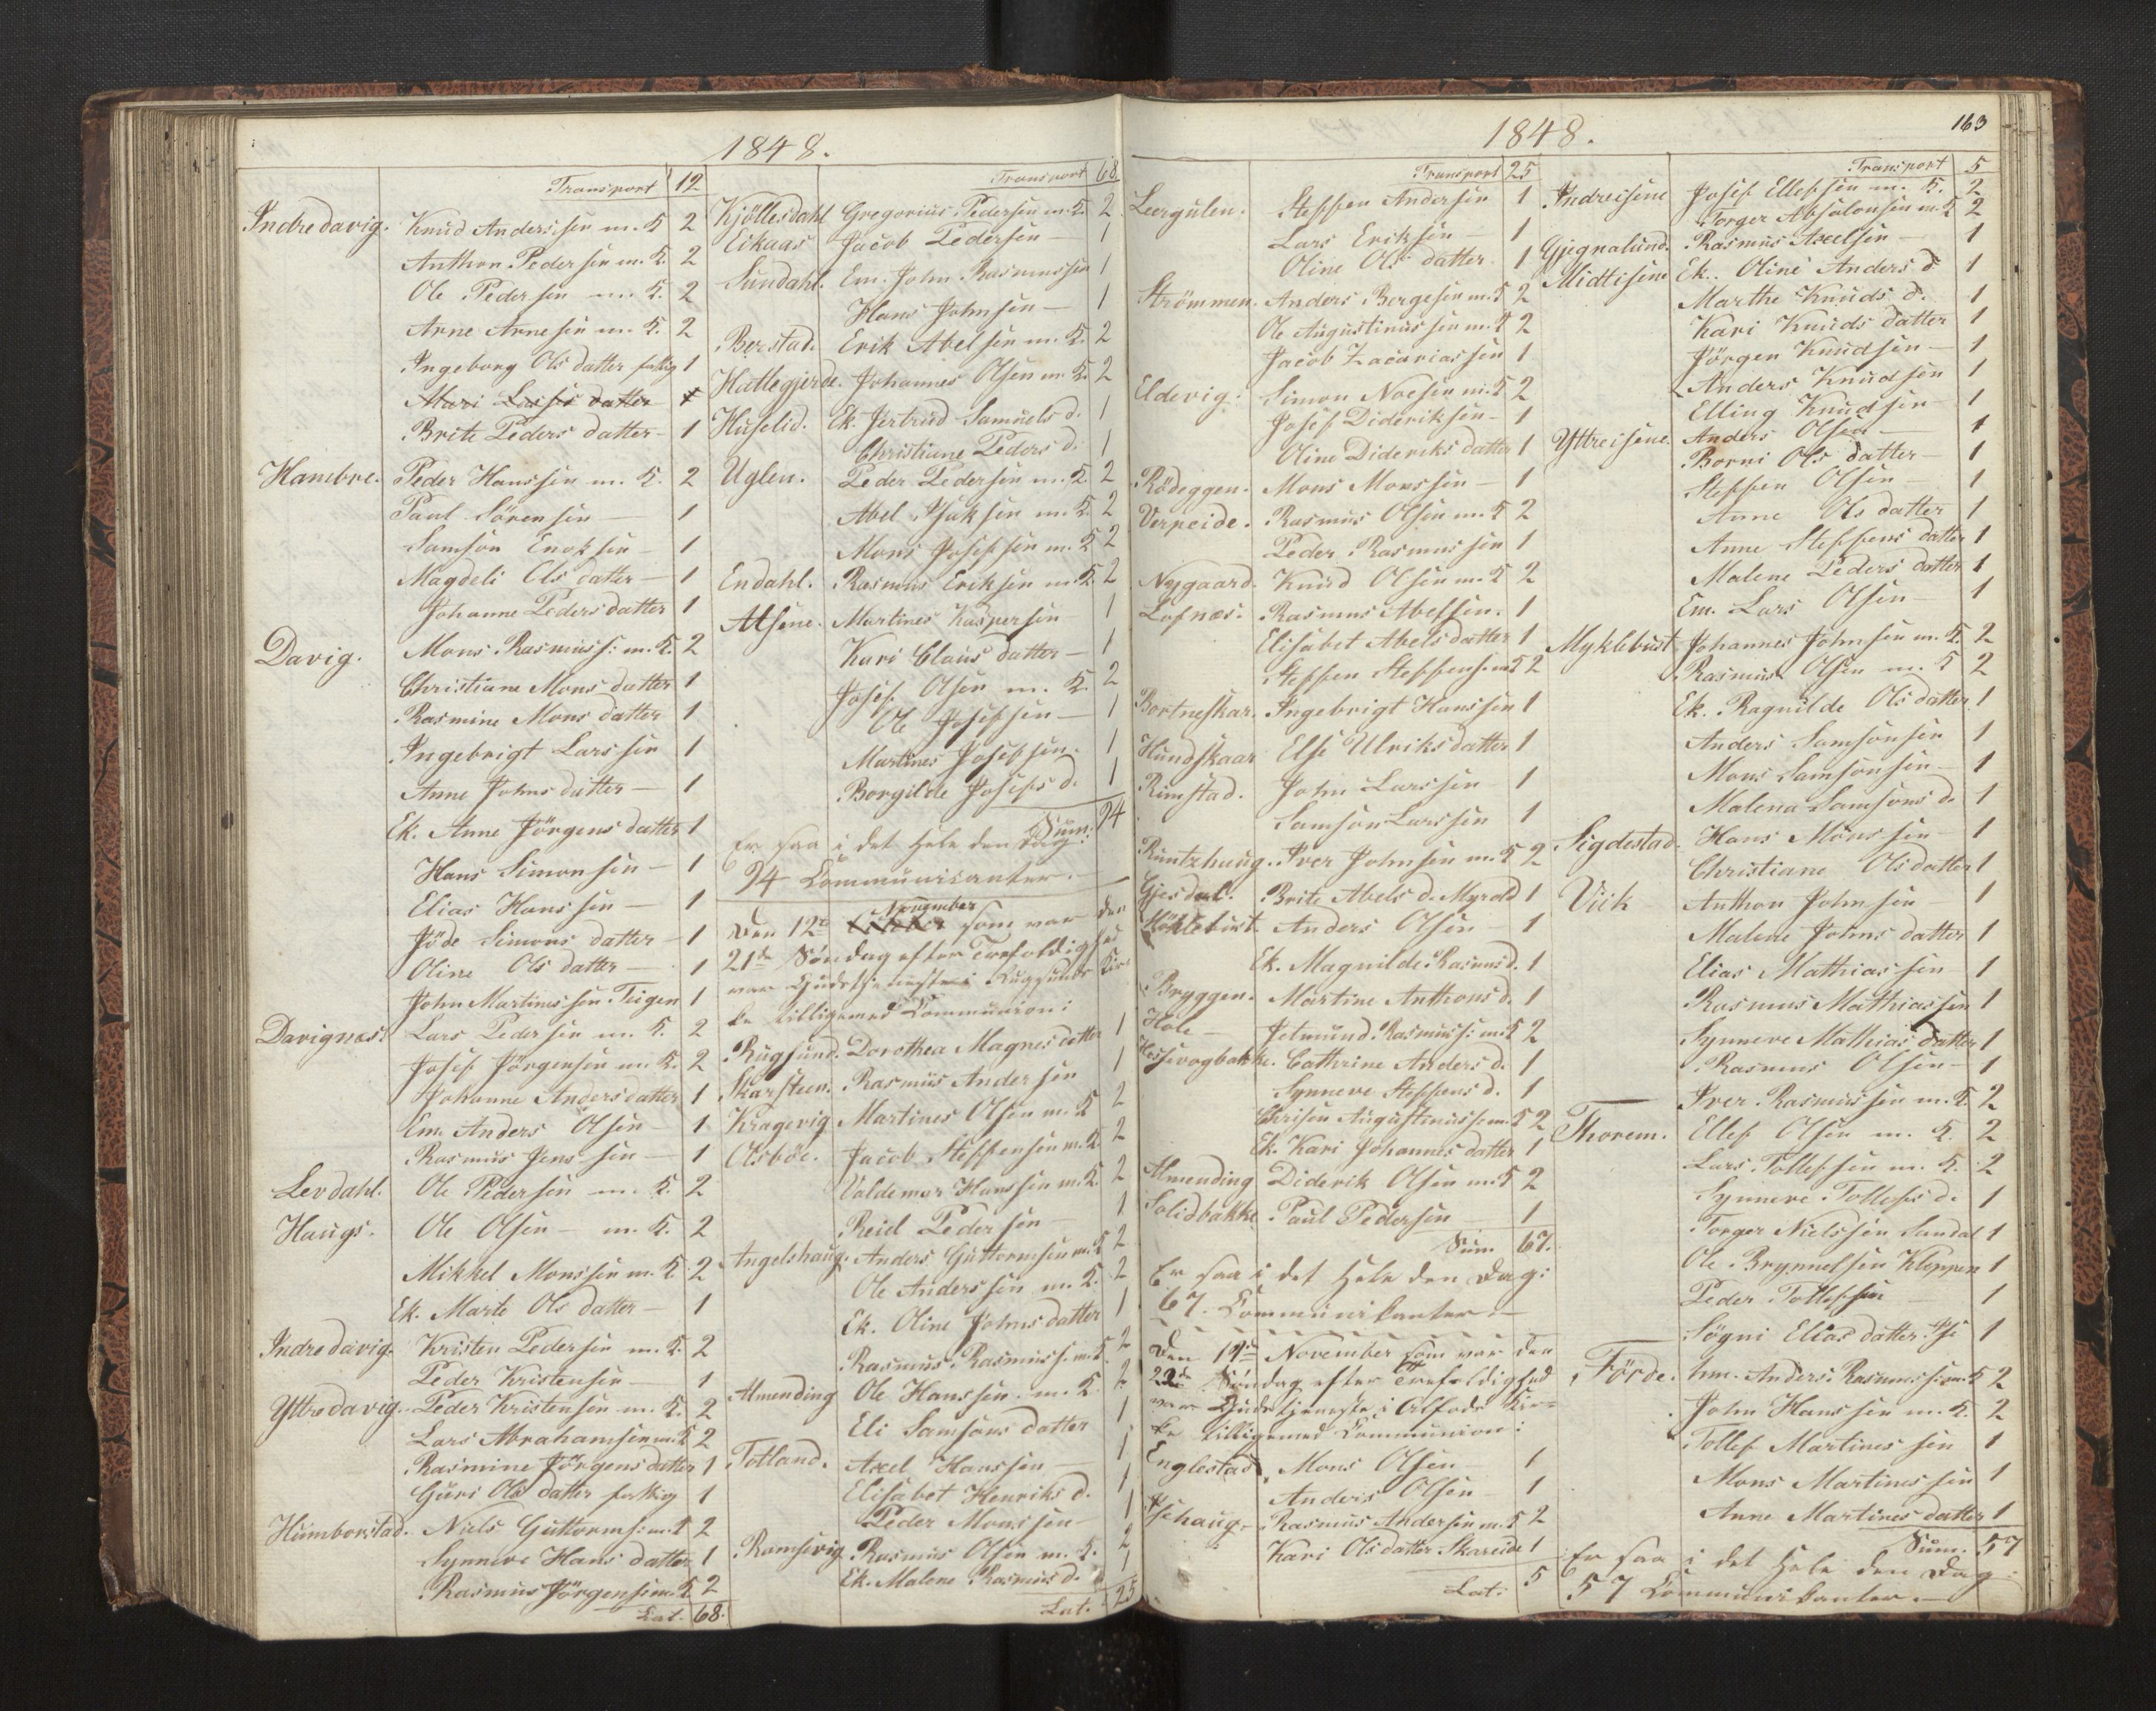 1848.
Transport 12
Indre davig. Knud Anderssen m. K. 2
Anthon Pedersen m. K. 2
Ole Pedersen m. K. 2
Arne Arnesen m. K. 2
Ingeborg Ols datter fattig 1
Mari Lasse datter
Brite Peders datter 1
Hambre. Peder Hanssen m. K. 2
Paul Sörensen 1
Samson Enoksen 1
Magdeli Ols datter 1
Johanne Peders datter 1
Davig. Mons Rasmuss: m. K. 2
Christiane Mons datter 1
Rasmine Mons datter 1
Ingebrigt Larssen 1
Anne Johns datter 1
Ek. Anne Jörgens datter 1
Hans Simonsen 1
Elias Hanssen 1
Jöde Simons datter 1
Oline Ols datter 1
John Martinussen Teigen 1
Davignæs: Lars Pedersen m. K. 2
Josef Jörgensen m. K. 2
Johanne Anders datter 1
Em. Anders Olsen 1
Rasmus Jenssen 1
Levdahl. Ole Pedersen m. K. 2
Haugs. Ole Olsen m. K. 2
Mikkel Monssen m. K. 2
Ek. Marte Ols datter 1
Indre davig. Kristen Pedersen m. K. 2
Peder Kristensen 1
Yttre davig. Peder Kristensen m. K. 2
Lars Abrahamsen m. K. 2
Rasmine Jörgens datter 1
Guri Ols datter fattig 1
Humborstad. Niels Guttorms: m. K. 2
Synneve Hans datter 1
Rasmus Jörgensen m. K. 2
Lat. 68.
Transport 68
Kjöllesdahl Gregorius Pedersen m. K. 2
Eikaas Jacob Pedersen 1
Sundahl. Em. John Rasmussen 1
Hans Johnsen 1
Berstad. Erik Abelsen m. K. 2
Hatlegjerde. Johannes Olsen m. K. 2
Huselid. Ek. Jertrud Samuels d. 1
Christiane Peders d. 1
Uglen. Peder Pedersen m. K. 2
Abel Isaksen m. K. 2
Mons Josefsen m. K. 2
Endahl. Rasmus Eriksen m. K. 2
Alsene. Martines Kaspersen 1
Kari Claus datter 1
Josef Olsen m. K. 2
Ole Josefsen 1
Martines Josefsen 1
Borgilde Josefs d. 1
Sum: 94
Er saa i det Hele den Dag:
94 Communicanter.
Den 12te November som var den
21de Söndag efter Trefoldighed
var Gudstjeneste i Rugsunds Kir-
ke tilligemed Communion:
Rugsund. Dorothea Magnes datter 1
Skarsteen. Rasmus Andersen 1
Kragevig Martines Olsen m. K. 2
Olsböe. Jacob Steffensen m. K. 2
Valdemar Hanssen m. K. 2
Reid Pedersen 1
Angelshaug. Anders Guttormsen m. K. 2
Ole Anderssen m. K. 2
Ek. Oline Johns datter 1
Rasmus Rasmuss: m. K. 2
Almending Ole Hanssen m. K. 2
Eli Samsons datter 1
Totland. Axel Hanssen 1
Elisabet Henriks d. 1
Peder Monssen 1
Ramsevig Rasmus Olsen m. K. 2
Ek. Malene Rasmus d. 1
Lat. 25
163
1848.
Transport 25
Leergulen. Steffen Andersen 1
Lars Eriksen 1
Oline Ols datter 1
Strömmen. Anders Bergesen m. K. 2
Ole Augustinussen m. K. 2
Jacob Zacariassen 1
Eldevig: Simon Noesen m. K. 2
Josef Dideriksen 1
Oline Dideriks datter 1
Rödeggen. Mons Monssen 1
Verpeide. Rasmus Olsen m. K. 2
Peder Rasmussen 1
Nygaard. Knud Olsen m. K. 2
Lofnæs. Rasmus Abelsen. 1
Elisabet Abels datter 1
Steffen Steffens: m. K. 2
Bortneskar. Ingebrigt Hanssen 1
Hundskaar Else Ulriks datter 1
Rimstad. John Larssen 1
Samson Larssen 1
Runtzhaug. Iver Johnsen m. K. 2
Gjesdal. Brite Abels d. Myrold 1
Möklebust Anders Olsen 1
Ek. Magnilde Rasmus d. 1
Bryggen. Martine Anthons d. 1
Hole Jetmund Rasmuss: m. K. 2
Hessevogbakke. Cathrine Anders d. 1
Synneve Steffens d. 1
Augustinuss: m. K. 2
Ek. Kari Johannes datter 1
Almending Diderik Olsen m. K. 2
Solidbakke Paul Pedersen 1
Sum 67.
Er saa i det Hele den Dag:
67. Communikanter.
Den 19de November som var den
22de Söndag efter Trefoldighed
var Gudstjeneste i Aafode Kir-
ke tilligemed Communion:
Englestad, Mons Olsen 1
Anders Olsen 1
Isehaug. Rasmus Andersen m. K. 2
Kari Ols datter Skareide 1
Lat: 5
Transport 5
Indreisene Josef Ellefsen m. K. 2
Torger Absalonsen m. K. 2
Gjegnalund. Rasmus Axelsen 1
Midtisene Ek. Oline Anders d. 1
Marthe Knuds d. 1
Kari Knuds datter 1
Jörgen Knudsen 1
Anders Knudsen 1
Elling Knudsen 1
Yttreisene. Anders Olsen 1
Borni Ols datter 1
Steffen Olsen 1
Anne Ols datter 1
Anne Steffens datter 1
Malene Peders datter 1
Em. Lars Olsen 1
Myklebust Johannes Johnsen m. K. 2
Rasmus Olsen m. K. 2
Ek. Ragnilde Ols datter. 1
Anders Samsonsen 1
Mons Samsonsen 1
Malena Samsons d. 1
Sigdestad. Hans Monssen 1
Christiane Ols datter 1
Viik Anthon Johnsen 1
Malene Johns datter 1
Elias Mathiassen 1
Rasmus Mathiassen 1
Synneve Mathias datter 1
Rasmus Olsen 1
Iver Rasmussen m. K. 2
Thorem. Ellef Olsen m. K. 2
Lars Tollefsen m. K. 2
Synneve Tollefs d. 1
Torger Nielssen Sundal 1
Ole Brynnelsen Kleppen 1
Peder Tollefsen 1
Sögni Elias datter 1
Förde. Em. Anders Rasmuss: m. K. 2
John Hanssen m. K. 2
Tollef Martinussen 1
Mons Martinussen 1
Anne Martines datter 1
Sum. 57
Er saa i det Hele den Dag:
57 Communikanter.